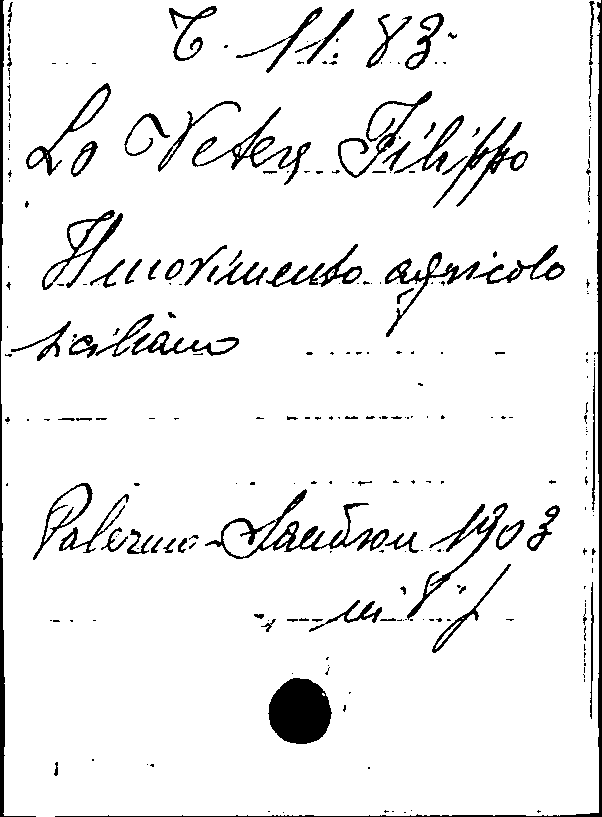 C. 11. 83.
Lo Vetere Filippo
Il movimento agricolo
siciliano
Palermo - Sandron 1903
in 8°